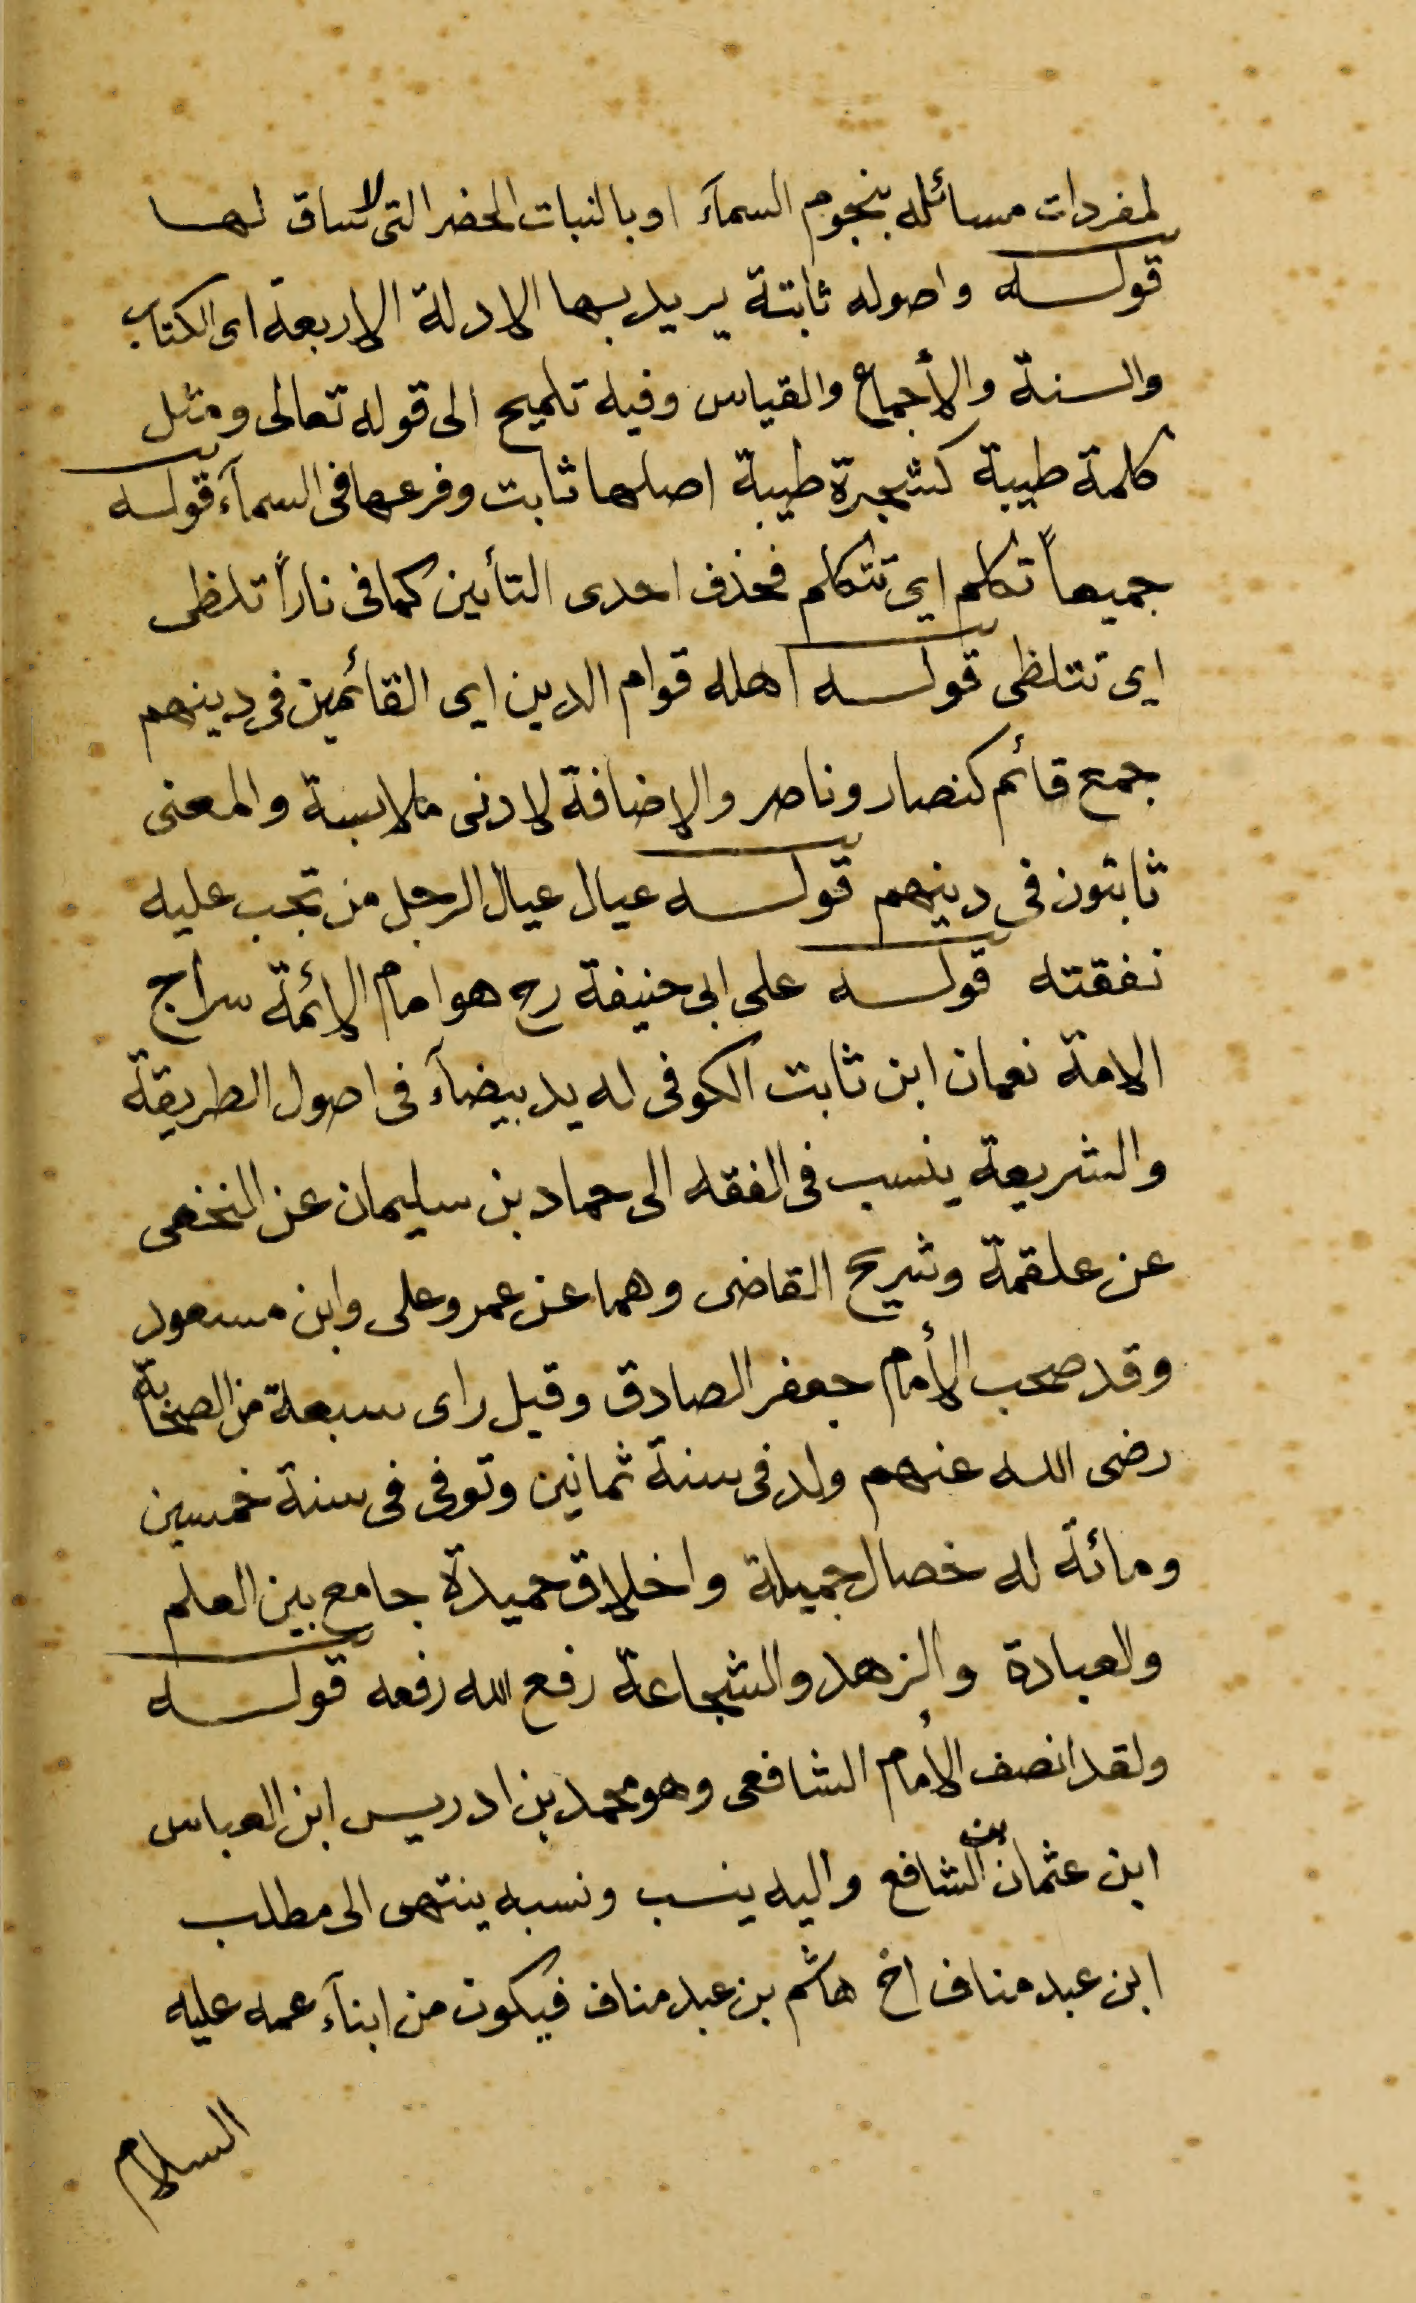 لمفردات مسائله بنجوم السمآء او بالنبات الخضر التى لا ساق لها
قوله واصوله ثابتة يريد بها الادلة الاربعة اى الكتاب
والسنة والأجماع والقياس وفيه تلميح الى قوله تعالى ومثل
كلمة طيبة كشجرة طيبة اصلها ثابت وفرعها فى السمآء قوله
جميعاً تكلم اي تتكلم فحذف احدى التأين كما فى ناراً تلظى
اى تتلظى قوله اهله قوام الدين اى القائمين فى دينهم
جمع قائم كنصار وناصر والاضافة لادنى ملابسة والمعنى
ثابتون فى دينهم قوله عيال عيال الرجل من تجب عليه
نفقته قوله على ابى حنيفة رح هو امام الائمة سراج
الامة نعمان ابن ثابت الكوفى له يد بيضآء فى اصول الطريقة
والشريعة ينسب فى الفقه الى حماد بن سليمان عن النخعى
عن علقمة وشريح القاضى وهما عن عمر وعلى وابن مسعود
وقد صحب الأمام جعفر الصادق وقيل راى سبعة من الصحابة
رضى الله عنهم ولد فى سنة ثمانين وتوفى فى سنة خمسين
ومائة له خصال جميلة واخلاق حميدة جامع بين العلم
والعبادة والزهد والشجاعة رفع الله رفعه قوله
ولقد انصف الأمام الشافعى وهو محمد بن ادريس ابن العباس
ابن عثمان بن الشافع واليه ينسب ونسبه ينتهى الى مطلب
ابن عبد مناف اخ هاشم بن عبد مناف فيكون من ابنآء عمه عليه
السلام